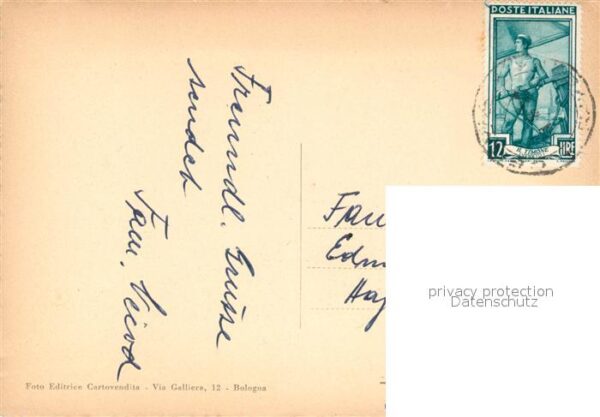 Freundl. Grüsse
sendet
Fam.
POSTE ITALIANE
12 LIRE
Fam
Edm
Hag
privacy protection
Datenschutz
Foto Editrice Cartovendita - Via Galliera, 12 - Bologna